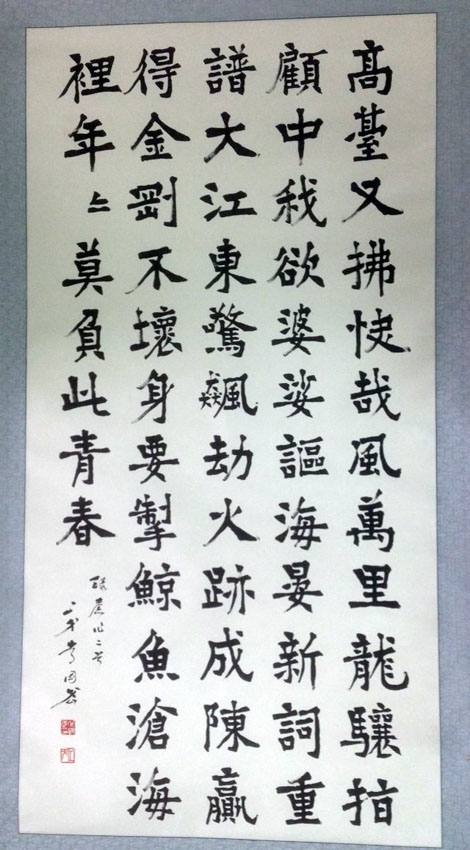 髙臺又拂快哉風萬里龍驤指
顧中我欲婆娑謳海晏新詞重
譜大江東驚飆劫火跡成陳贏
得金剛不壞身要掣鯨魚滄海
裡年〻莫負此青春